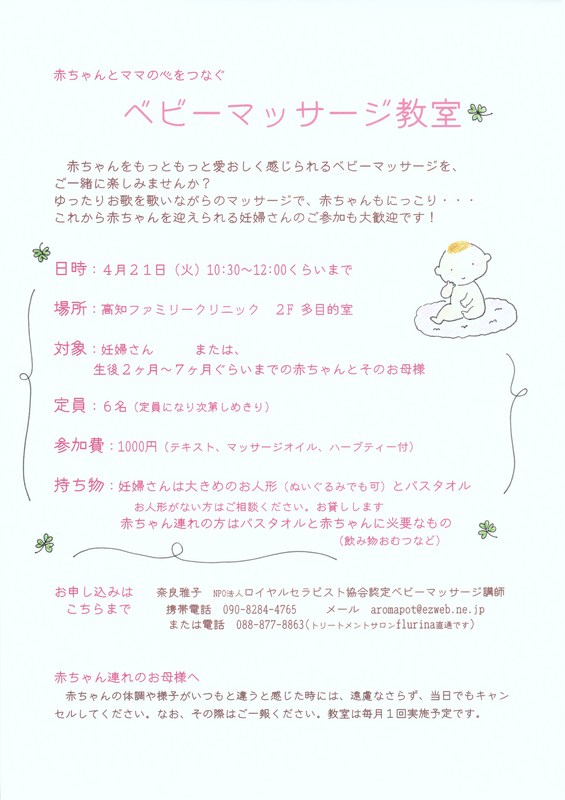 赤ちゃんとママの心をつなぐ
ベビーマッサージ教室
赤ちゃんをもっともっと愛おしく感じられるベビーマッサージを、
ご一緒に楽しみませんか？
ゆったりお歌を歌いながらのマッサージで、赤ちゃんもにっこり・・・
これから赤ちゃんを迎えられる妊婦さんのご参加も大歓迎です！
日時：４月２１日（火）10:30～12:00くらいまで
場所：高知ファミリークリニック　２Ｆ 多目的室
対象：妊婦さん　　または、
生後２ヶ月～７ヶ月ぐらいまでの赤ちゃんとそのお母様
定員：６名（定員になり次第しめきり）
参加費：1000円（テキスト、マッサージオイル、ハーブティー付）
持ち物：妊婦さんは大きめのお人形（ぬいぐるみでも可）とバスタオル
お人形がない方はご相談ください。お貸しします
赤ちゃん連れの方はバスタオルと赤ちゃんに必要なもの
（飲み物おむつなど）
お申し込みは　奈良雅子　NPO法人ロイヤルセラピスト協会認定ベビーマッサージ講師
こちらまで　携帯電話　090-8284-4765　　メール　aromapot@ezweb.ne.jp
または電話　088-877-8863(トリートメントサロンflurina直通です)
赤ちゃん連れのお母様へ
赤ちゃんの体調や様子がいつもと違うと感じた時には、遠慮なさらず、当日でもキャン
セルしてください。なお、その際はご一報ください。教室は毎月１回実施予定です。